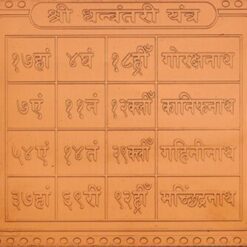 श्री धन्वंतरी यंत्र
१७हां ४घं १८ह्रीं गोरक्षनाथ
७एं ११नं १२स्त्रीं कानिफनाथ
५४एं १४तं २१क्लीं गहिनीनाथ
३७हां ६९रीं ९२ह्रीं मच्छिंद्रनाथ